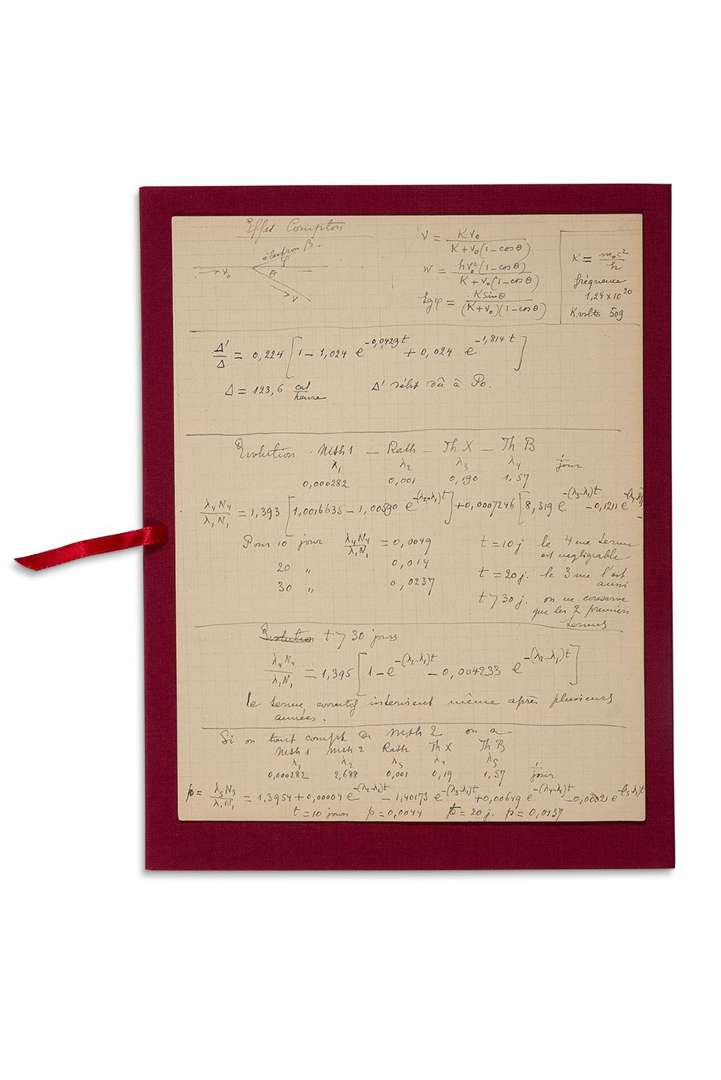 Effet Compton
électron β
φ
θ
→ ν₀
→ ν
ν = Kν₀ / (K+ν₀(1−cosθ))
W = hν₀²(1−cosθ) / (K+ν₀(1−cosθ))
tgφ = K sinθ / ((K+ν₀)(1−cosθ))
K = m₀c² / h
fréquence
1,24×10²⁰
K.volts 509
Δ'/Δ = 0,224 [1 − 1,024 e^(−0,0423t) + 0,024 e^(−1,814t)]
Δ = 123,6 cal/heure Δ' dû à Po.
Evolution . Msth 1 — Rath — Th X — Th B
λ₁ λ₂ λ₃ λ₄ 1/jour
0,000282 0,001 0,190 1,57
λ₄N₄/λ₁N₁ = 1,393 [1,0016635 − 1,00590 e^(−(λ₂−λ₁)t)] + 0,0007246 [8,319 e^(−(λ₃−λ₁)t) − 0,1211 e
Pour 10 jour λ₄N₄/λ₁N₁ = 0,0049
20 „ 0,014
30 „ 0,0237
t = 10 j le 4me terme
est negligeable
t = 20 j. le 3me l'est
aussi
t > 30 j. on ne conserve
que les 2 premiers
termes
Evolution t > 30 jours
λ₄N₄/λ₁N₁ = 1,395 [1 − e^(−(λ₂−λ₁)t) − 0,004233 e^(−(λ₂−λ₁)t)]
le terme correctif intervient même après plusieurs
années.
Si on tient compte de Msth 2 on a
Msth 1 Msth 2 Rath Th X Th B
λ₁ λ₂ λ₃ λ₄ λ₅ 1/jour
0,000282 2,688 0,001 0,19 1,57
p = λ₅N₅/λ₁N₁ = 1,3954 + 0,00004 e^(−(λ₂−λ₁)t) − 1,40173 e^(−(λ₃−λ₁)t) + 0,00649 e^(−(λ₄−λ₁)t) − 0,00021 e^(−(λ₅−λ₁)t)
t = 10 jours p = 0,0044 t = 20 j. p = 0,0137